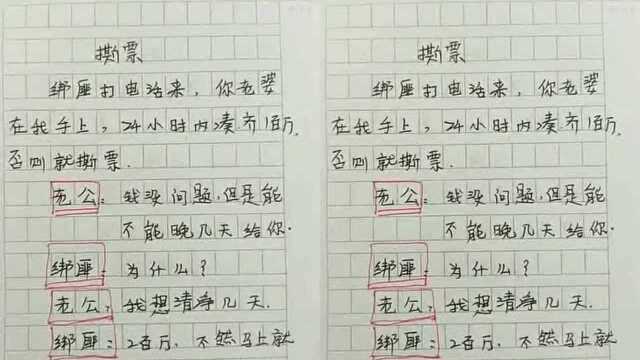 撕票
绑匪打电话来，你老婆
在我手上，24小时内凑齐1百万，
否则就撕票.
老公：我没问题，但是能
不能晚几天给你.
绑匪：为什么？
老公：我想清净几天.
绑匪：2百万，不然马上就
撕票
绑匪打电话来，你老婆
在我手上，24小时内凑齐1百万，
否则就撕票.
老公：我没问题，但是能
不能晚几天给你.
绑匪：为什么？
老公：我想清净几天.
绑匪：2百万，不然马上就